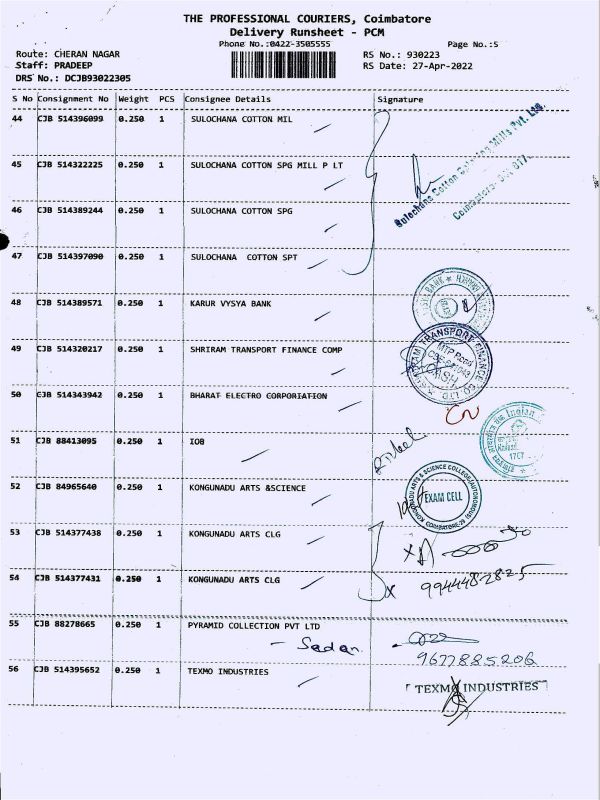 THE PROFESSIONAL COURIERS, Coimbatore
Delivery Runsheet - PCM
Phone No.:0422-3505555
Page No.:5
Route: CHERAN NAGAR
RS No.: 930223
Staff: PRADEEP
RS Date: 27-Apr-2022
DRS No.: DCJB93022305
S No Consignment No Weight PCS Consignee Details Signature
44 CJB 514396099 0.250 1 SULOCHANA COTTON MIL
Sulochana Cotton Spinning Mills Pvt. Ltd.
45 CJB 514322225 0.250 1 SULOCHANA COTTON SPG MILL P LT
46 CJB 514389244 0.250 1 SULOCHANA COTTON SPG
47 CJB 514397090 0.250 1 SULOCHANA COTTON SPT
48 CJB 514389571 0.250 1 KARUR VYSYA BANK
49 CJB 514320217 0.250 1 SHRIRAM TRANSPORT FINANCE COMP
TRANSPORT FINANCE CO LTD
MTP Road
50 CJB 514343942 0.250 1 BHARAT ELECTRO CORPORIATION
51 CJB 88413095 0.250 1 IOB
Indian
52 CJB 84965640 0.250 1 KONGUNADU ARTS &SCIENCE
KONGUNADU ARTS & SCIENCE COLLEGE(AUTONOMOUS)
EXAM CELL
COIMBATORE-29
53 CJB 514377438 0.250 1 KONGUNADU ARTS CLG
54 CJB 514377431 0.250 1 KONGUNADU ARTS CLG
x 9944482825
55 CJB 88278665 0.250 1 PYRAMID COLLECTION PVT LTD
- Sadan.
9677885206
56 CJB 514395652 0.250 1 TEXMO INDUSTRIES
TEXMO INDUSTRIES